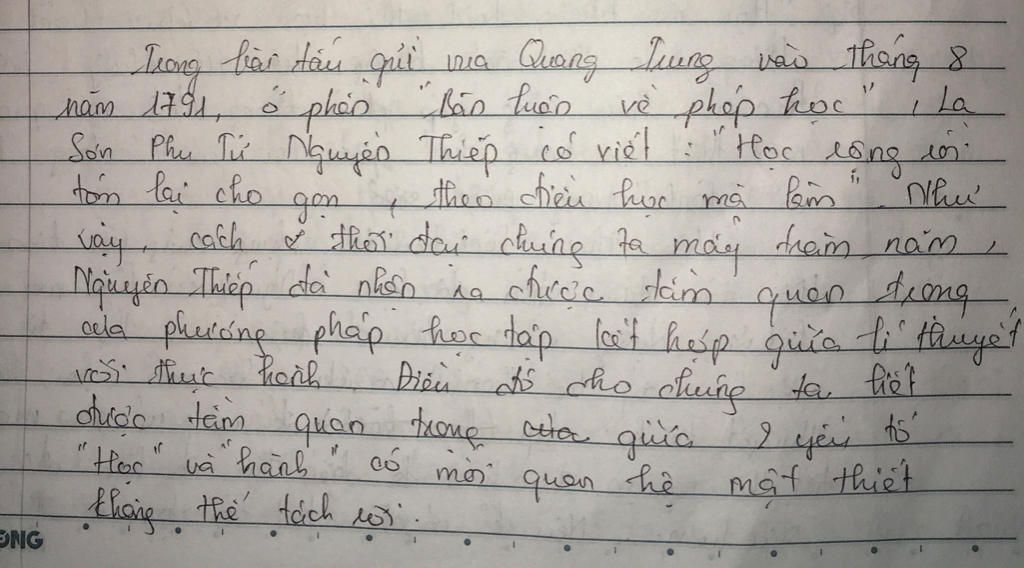 Trong bài tấu gửi vua Quang Trung vào tháng 8
năm 1791, ở phần "Bàn luận về phép học", La
Sơn Phu Tử Nguyễn Thiếp có viết: "Học rộng rồi
tóm lại cho gọn, theo điều học mà làm". Như
vậy, cách thời đại chúng ta mấy trăm năm,
Nguyễn Thiếp đã nhận ra được tầm quan trọng
của phương pháp học tập kết hợp giữa lí thuyết
với thực hành. Điều đó cho chúng ta biết
được tầm quan trọng của giữa 2 yếu tố
"Học" và "hành" có mối quan hệ mật thiết
không thể tách rời.
ONG